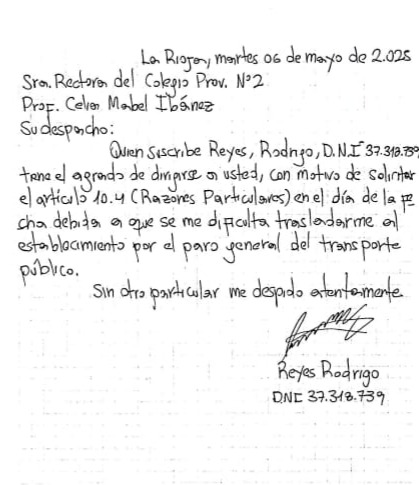 La Rioja, martes 06 de mayo de 2.025
Sra. Rectora del Colegio Prov. N°2
Prof. Celia Mabel Ibánez
Su despacho:
Quien suscribe Reyes, Rodrigo, D.N.I 37.318.739
tene el agrado de dirigirse a usted, con motivo de solicitar
el artículo 10.4 (Razones Particulares) en el día de la fe
cha debido a que se me dificulta trasladarme al
establecimiento por el paro general del transporte
público.
Sin otro particular me despido atentamente.
Reyes Rodrigo
DNI 37.318.739